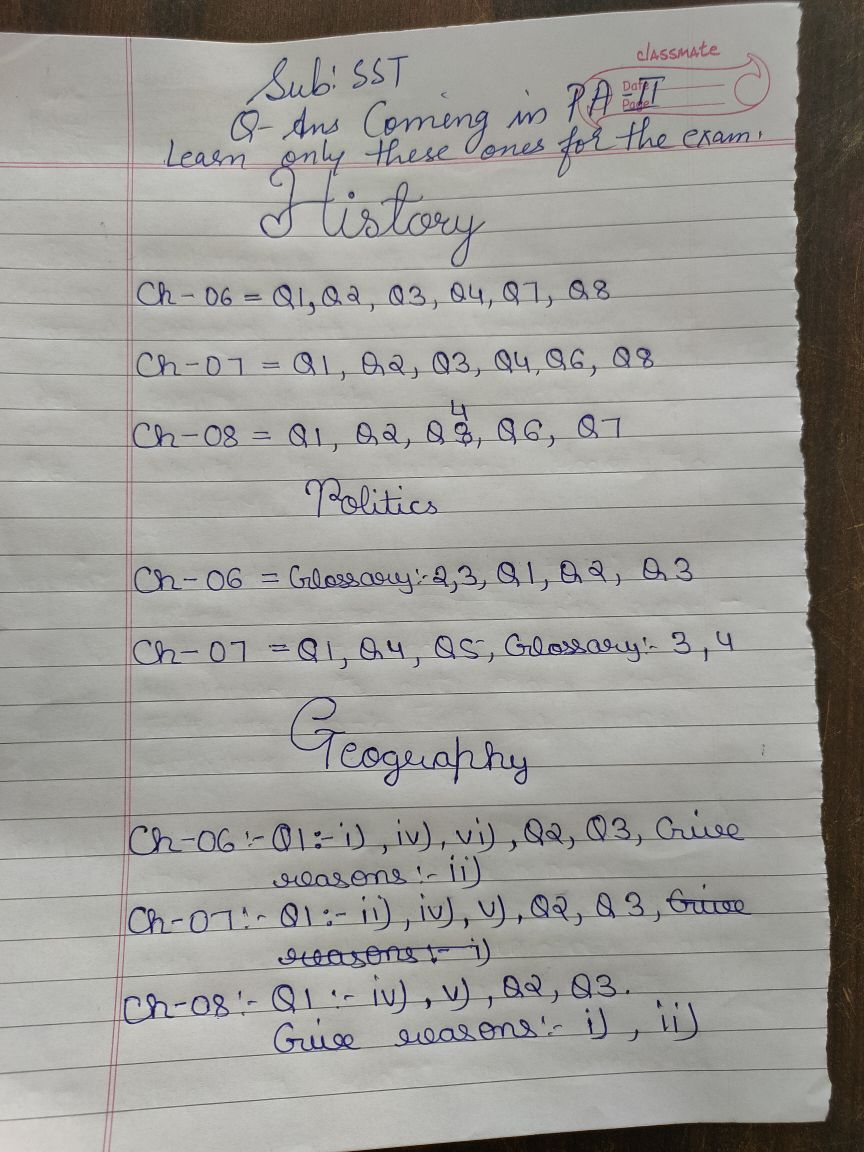 classmate
Date
Page
Sub: SST
Q-Ans Coming in PA-II
Learn only these ones for the exam.
History
Ch-06 = Q1, Q2, Q3, Q4, Q7, Q8
Ch-07 = Q1, Q2, Q3, Q4, Q6, Q8
Ch-08 = Q1, Q2, Q4, Q6, Q7
Politics
Ch-06 = Glossary:- 2,3, Q1, Q2, Q3
Ch-07 = Q1, Q4, Q5, Glossary:- 3,4
Geography
Ch-06:- Q1:- i), iv), vi), Q2, Q3, Give
reasons:- ii)
Ch-07:- Q1:- ii), iv), v), Q2, Q3, Give
reasons:- i)
Ch-08:- Q1:- iv), v), Q2, Q3.
Give reasons:- i), ii)